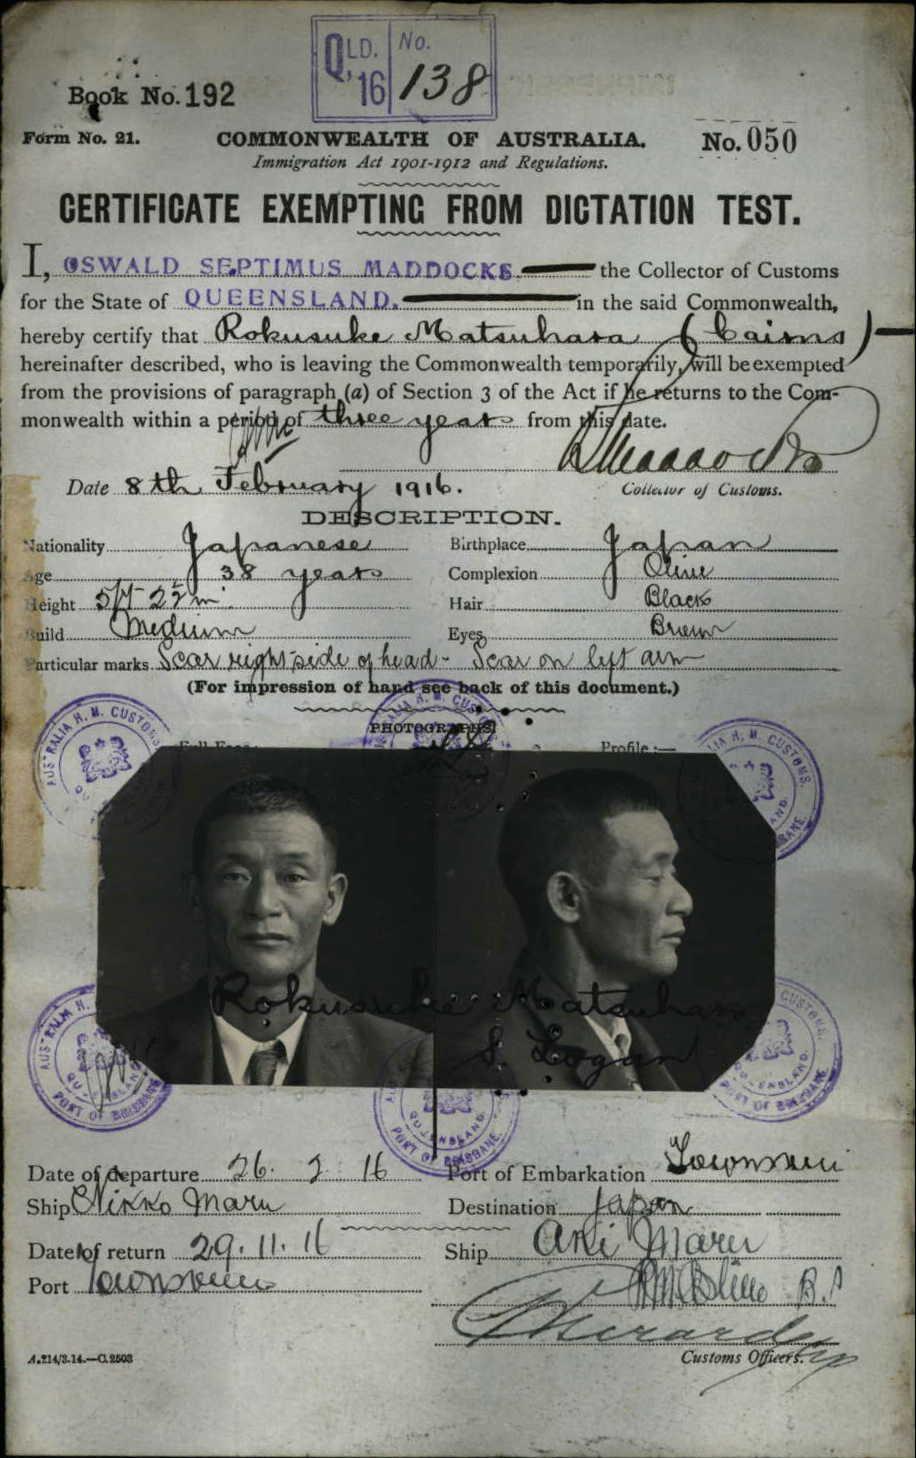 QLD. 16 No. 138
Book No. 192
Form No. 21. COMMONWEALTH OF AUSTRALIA. No. 050
Immigration Act 1901-1912 and Regulations.
CERTIFICATE EXEMPTING FROM DICTATION TEST.
I, OSWALD SEPTIMUS MADDOCKS the Collector of Customs
for the State of QUEENSLAND. in the said Commonwealth,
hereby certify that Rokusuke Matsuhara (Cairns)
hereinafter described, who is leaving the Commonwealth temporarily, will be exempted
from the provisions of paragraph (a) of Section 3 of the Act if he returns to the Com-
monwealth within a period of three years from this date.
Maddocks
Date 8th February 1916. Collector of Customs.
DESCRIPTION.
Nationality Japanese Birthplace Japan
Age 38 years Complexion Olive
Height 5ft 2½ in Hair Black
Build Medium Eyes Brown
Particular marks Scar right side of head - Scar on left arm
(For impression of hand see back of this document.)
PHOTOGRAPHS
Full Face:— Profile:—
AUSTRALIA H. M. CUSTOMS
Rokusuke Matsuhara
S. Logan
AUSTRALIA H. M. CUSTOMS. QUEENSLAND. PORT OF BRISBANE
Date of departure 26. 2 16 Port of Embarkation Townsville
Ship Nikko Maru Destination Japan
Date of return 29. 11. 16 Ship Aki Maru
Port Townsville
Customs Officers.
A.214/3.14.—C.2503